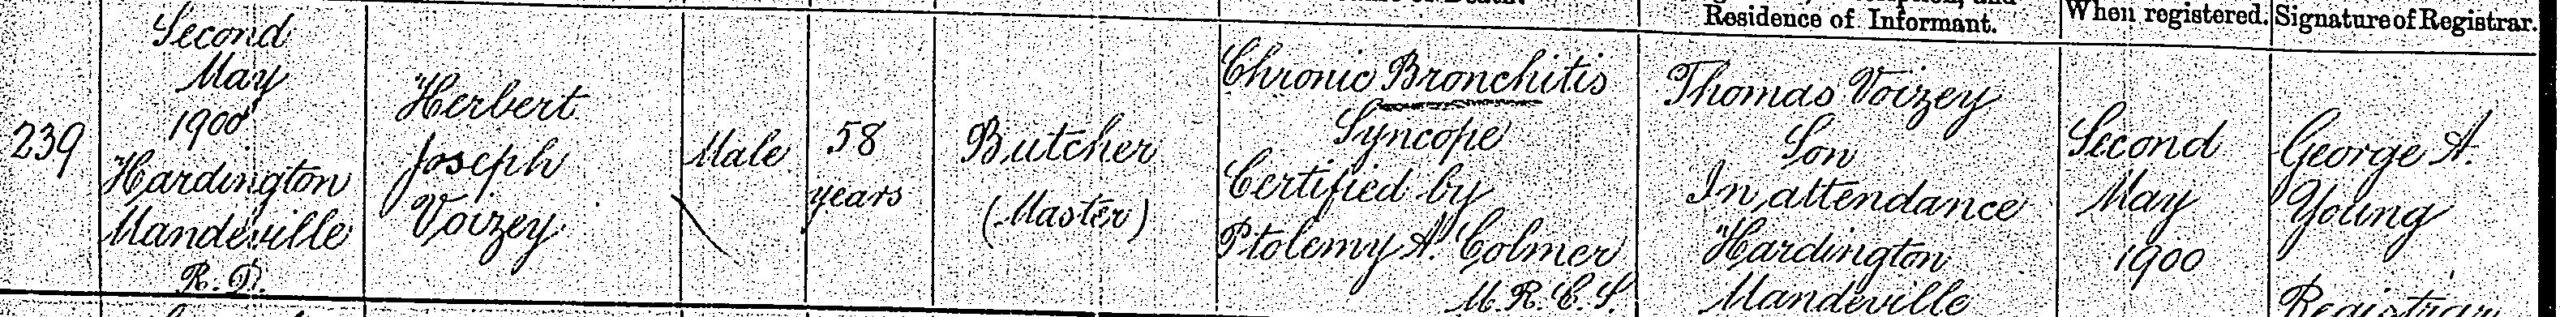 Residence of Informant.
When registered.
Signature of Registrar.
239
Second
May
1900
Hardington
Mandeville
R. D.
Herbert
Joseph
Voizey
Male
58
years
Butcher
(Master)
Chronic Bronchitis
Syncope
Certified by
Ptolemy A. Colmer
M. R. C. S.
Thomas Voizey
Son
In attendance
Hardington
Mandeville
Second
May
1900
George A.
Young
Registrar